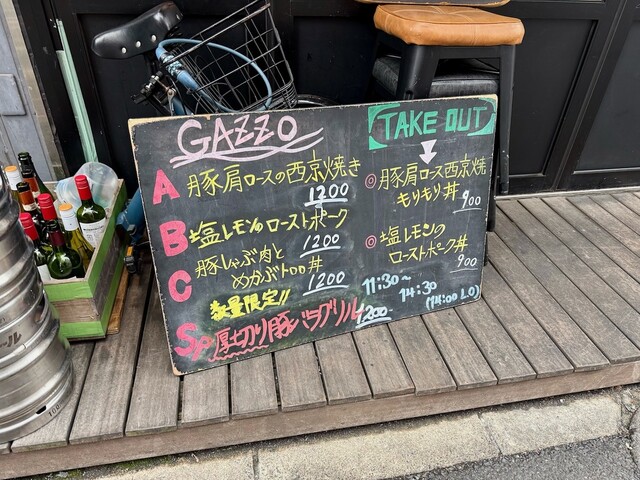 GAZZO
A 豚肩ロースの西京焼き
1200
B 塩レモンのローストポーク
1200
C 豚しゃぶ肉と
めかぶトロロ丼
1200
数量限定!!
Sp 厚切り豚バラグリル
1200
TAKE OUT
◎ 豚肩ロース西京焼
もりもり丼
900
◎ 塩レモンの
ローストポーク丼
900
11:30~
14:30
(14:00 L.O)